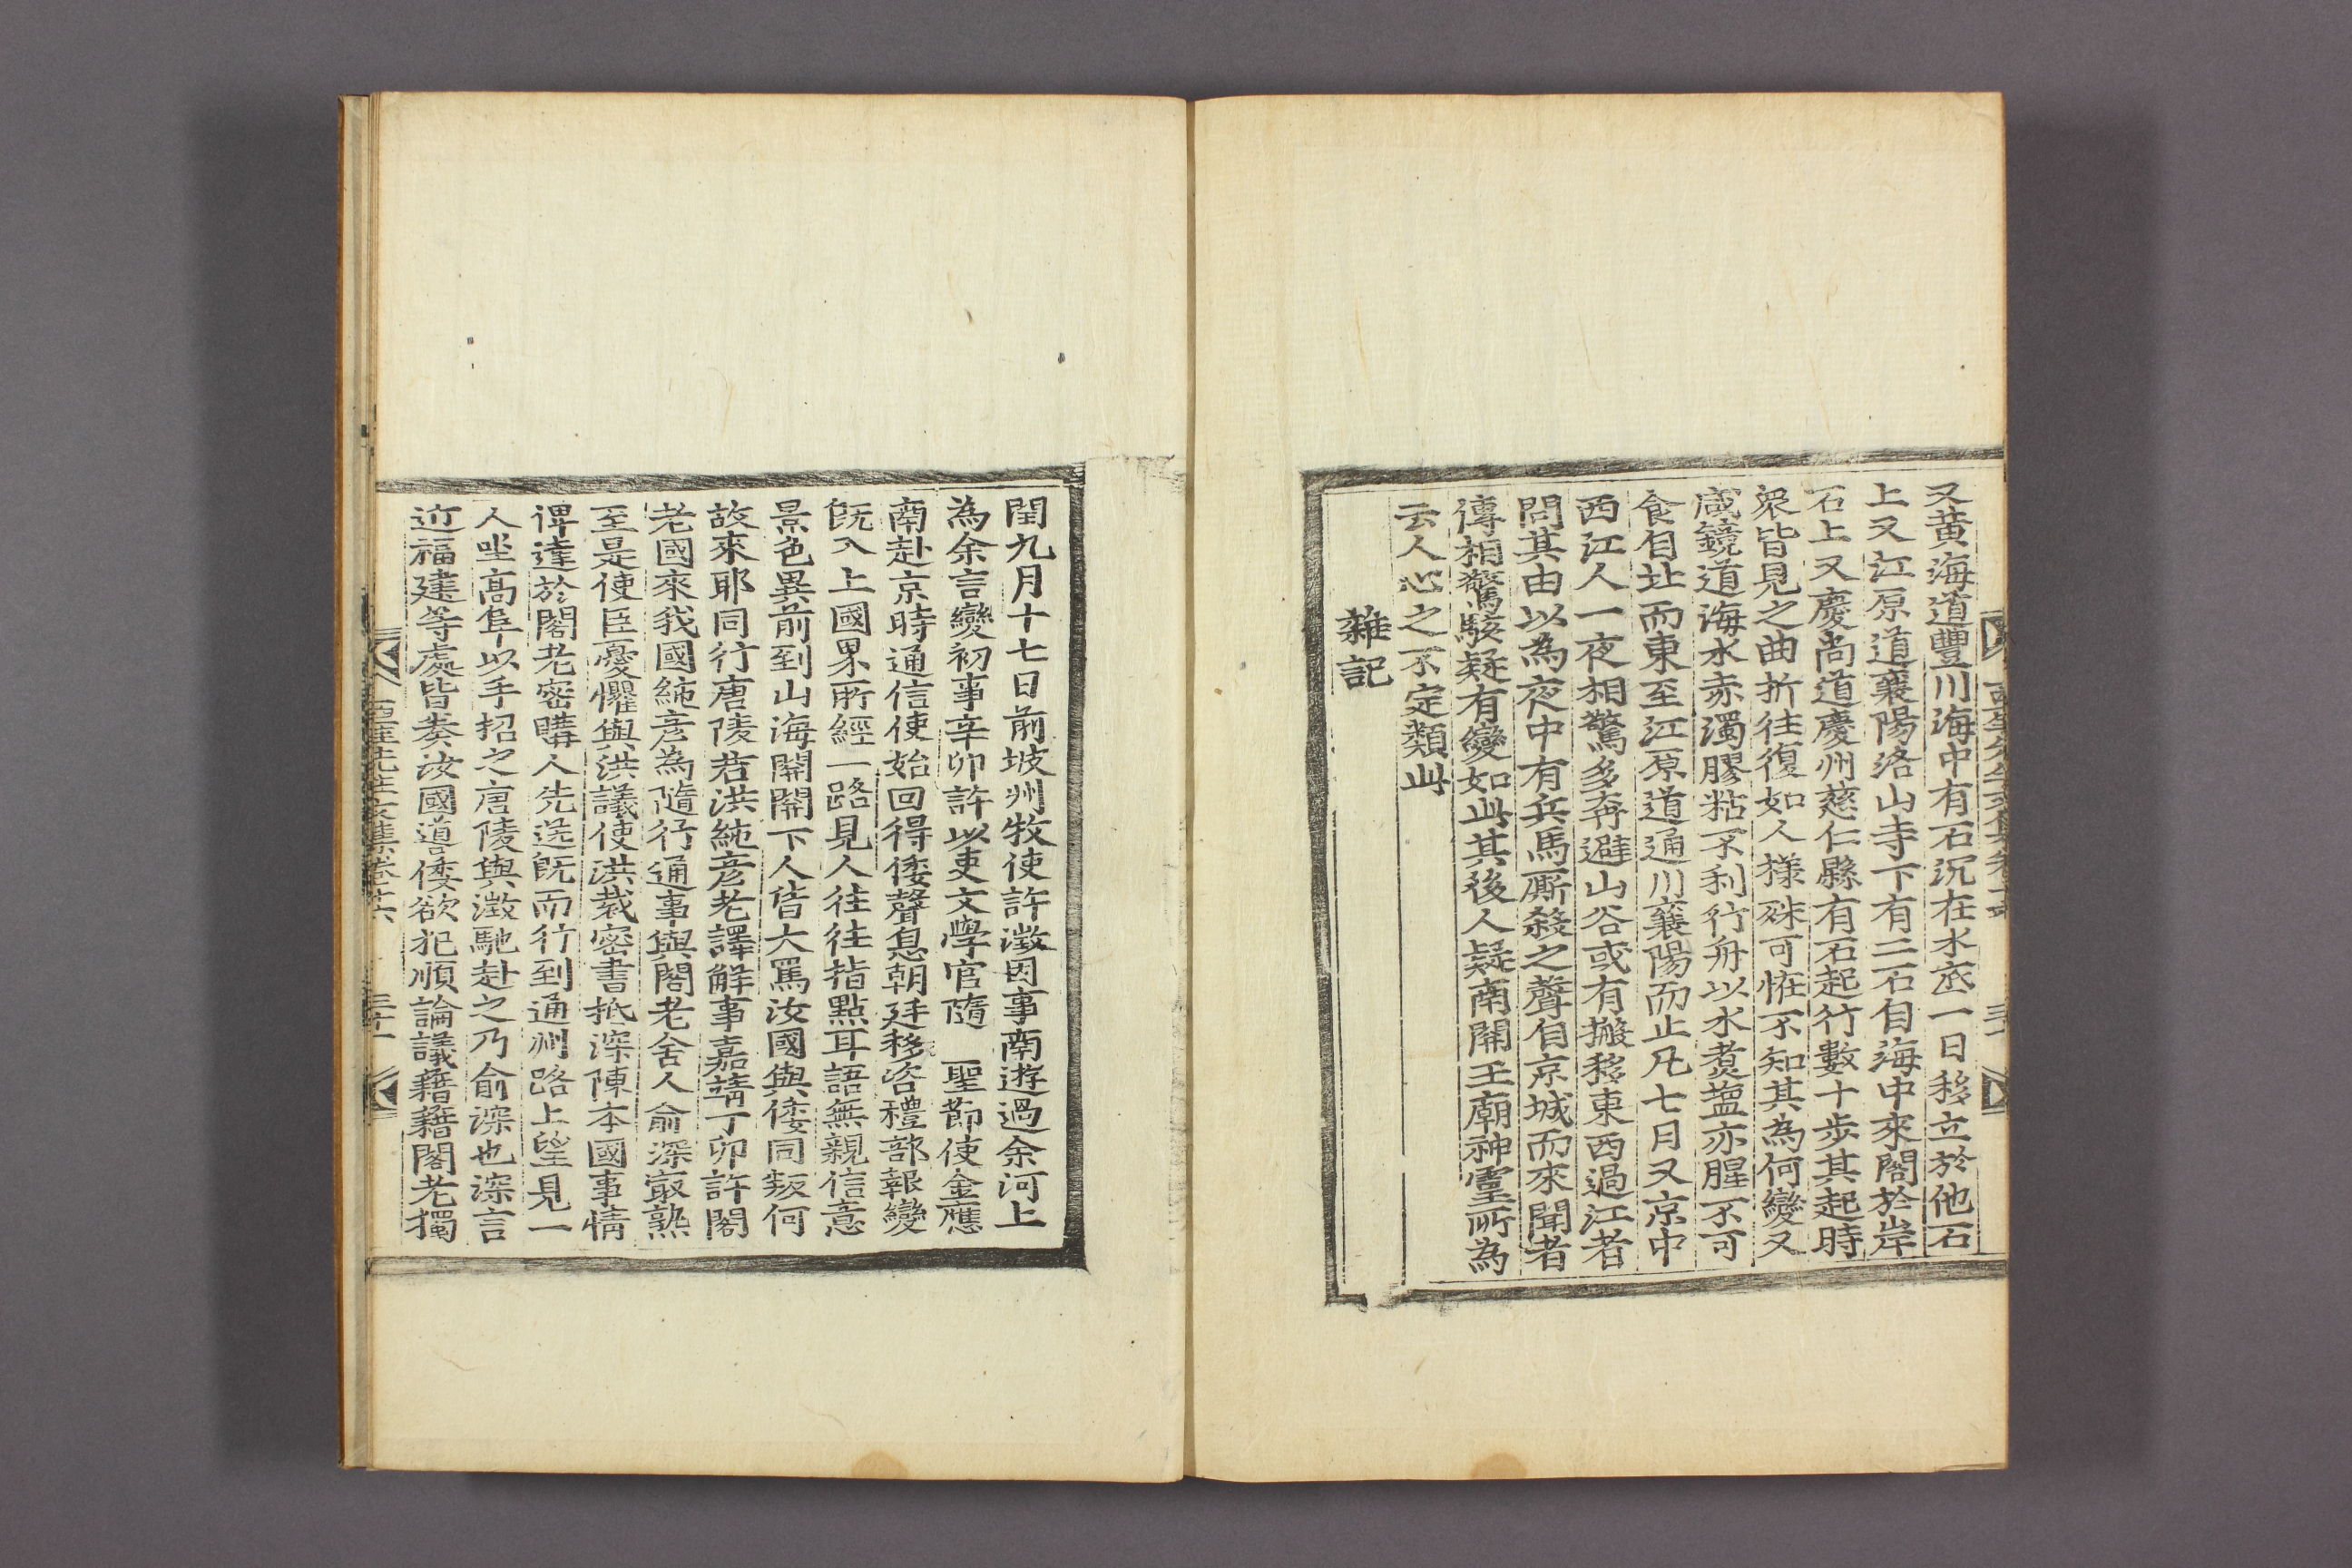 又黃海道豐川海中有石沉在水底一日移立於他石
上又江原道襄陽洛山寺下有二石自海中來閣於岸
石上又慶尙道慶州慈仁縣有石起行數十步其起時
衆皆見之曲折往復如人樣殊可恠不知其為何變又
咸鏡道海水赤濁膠粘不利行舟以水煮塩亦腥不可
食自北而東至江原道通川襄陽而止凡七月又京中
西江人一夜相驚多奔避山谷或有搬移東西過江者
問其由以為夜中有兵馬厮殺之聲自京城而來聞者
傳相驚駭疑有變如此其後人疑南關王廟神靈所為
云人心之不定類此
雜記
閏九月十七日前坡州牧使許澂因事南遊過余河上
為余言變初事辛卯許以吏文學官隨 聖節使金應
南赴京時通信使始回得倭聲息朝廷移咨禮部報變
旣入上國界所經一路見人往往指點耳語無親信意
景色異前到山海關關下人皆大罵汝國與倭同叛何
故來耶同行唐陵君洪純彥老譯解事嘉靖丁卯許閣
老國來我國純彥為隨行通事與閣老舍人兪深最熟
至是使臣憂懼與洪議使洪裁密書抵深陳本國事情
俾達於閣老密購人先送旣而行到通州路上望見一
人坐高阜以手招之唐陵與澂馳赴之乃兪深也深言
近福建等處皆奏汝國導倭欲犯順論議藉藉閣老獨
西厓先生文集卷十六 三十一